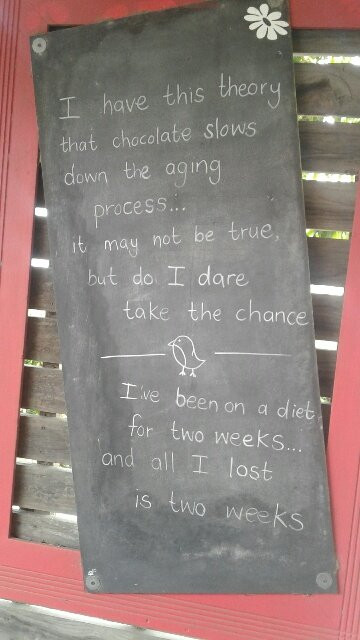 I have this theory
that chocolate slows
down the aging
process...
it may not be true,
but do I dare
take the chance
I've been on a diet,
for two weeks...
and all I lost
is two weeks